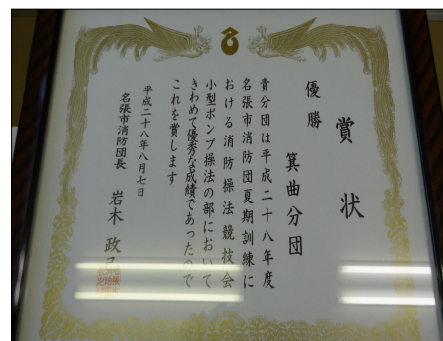 賞状
優勝
箕曲分団
貴分団は平成二十八年度
名張市消防団夏期訓練に
おける消防操法競技会
小型ポンプ操法の部において
きわめて優秀な成績であったので
これを賞します
平成二十八年八月七日
名張市消防団長
岩木政